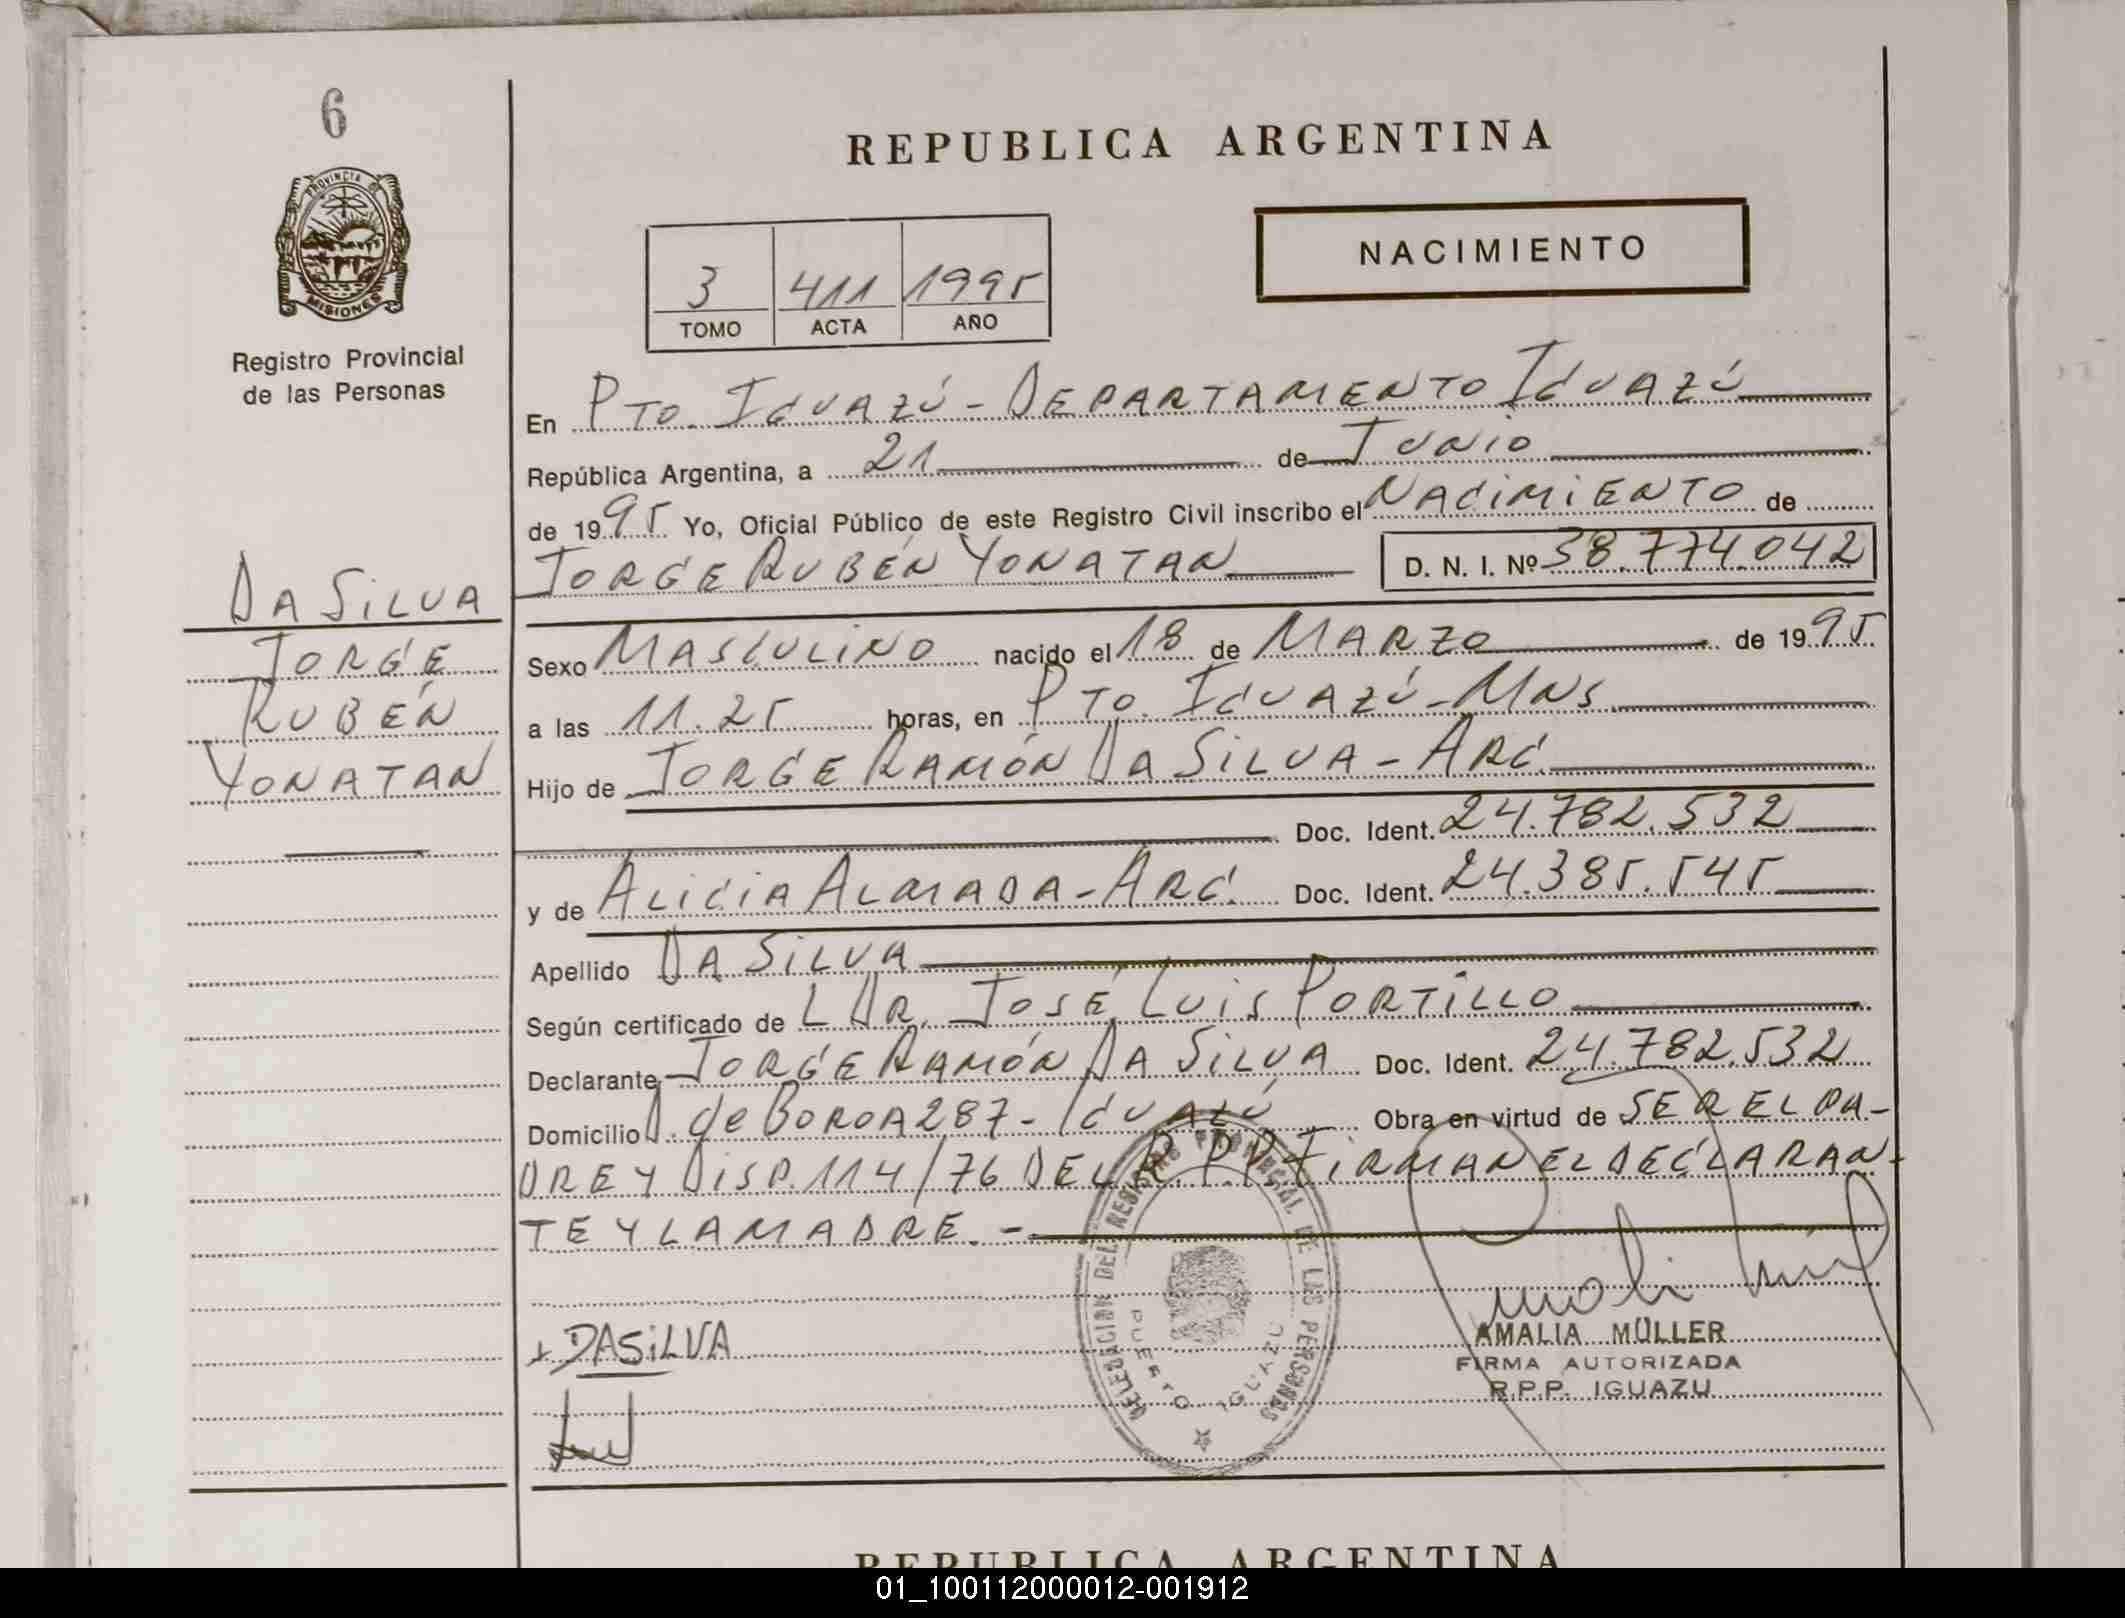 6
PROVINCIA DE
MISIONES
Registro Provincial
de las Personas
DA SILVA
JORGE
RUBÉN
YONATAN
REPUBLICA ARGENTINA
NACIMIENTO
3 411 1995
TOMO ACTA AÑO
En PTO. IGUAZÚ - DEPARTAMENTO IGUAZÚ
República Argentina, a 21 de JUNIO
de 1995 Yo, Oficial Público de este Registro Civil inscribo el NACIMIENTO de
JORGE RUBÉN YONATAN D. N. I. Nº 38.774.042
Sexo MASCULINO nacido el 18 de MARZO de 1995
a las 11.25 horas, en PTO. IGUAZÚ - MNS
Hijo de JORGE RAMÓN DA SILVA - ARG.
Doc. Ident. 24.782.532
y de ALICIA ALMADA - ARG. Doc. Ident. 24.385.545
Apellido DA SILVA
Según certificado de L DR. JOSÉ LUIS PORTILLO
Declarante JORGE RAMÓN DA SILVA Doc. Ident. 24.782.532
Domicilio D. de BOROA 287 - IGUAZÚ Obra en virtud de SER EL PA-
DRE Y DISP. 114/76 DEL R.P.P. FIRMAN EL DECLARAN-
TE Y LA MADRE. -
DELEGACION DEL REGISTRO PROVINCIAL DE LAS PERSONAS
PUERTO IGUAZU
DASILVA
AMALIA MÜLLER
FIRMA AUTORIZADA
R.P.P. IGUAZU
REPUBLICA ARGENTINA
01_100112000012-001912